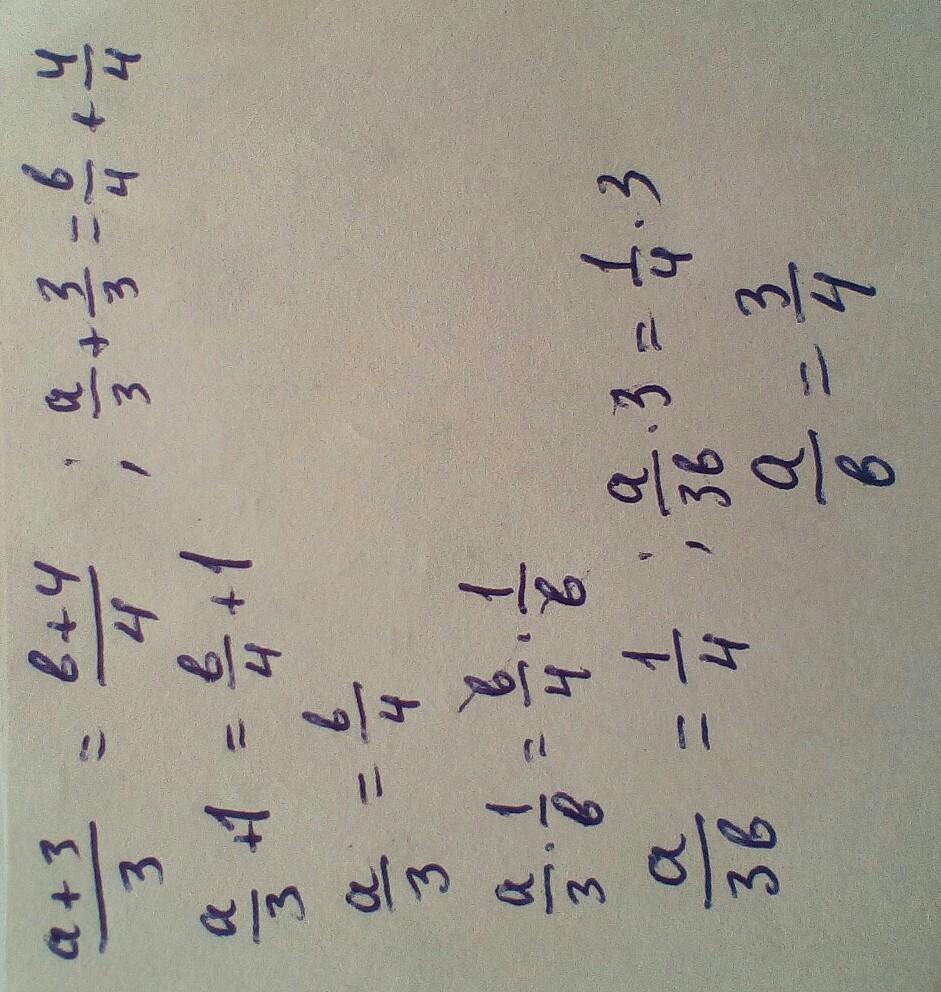 (a+3)/3 = (b+4)/4 ; a/3 + 3/3 = b/4 + 4/4
a/3 + 1 = b/4 + 1
a/3 = b/4
a/3 · 1/b = b/4 · 1/b
a/3b = 1/4 ; a/3b · 3 = 1/4 · 3
a/b = 3/4